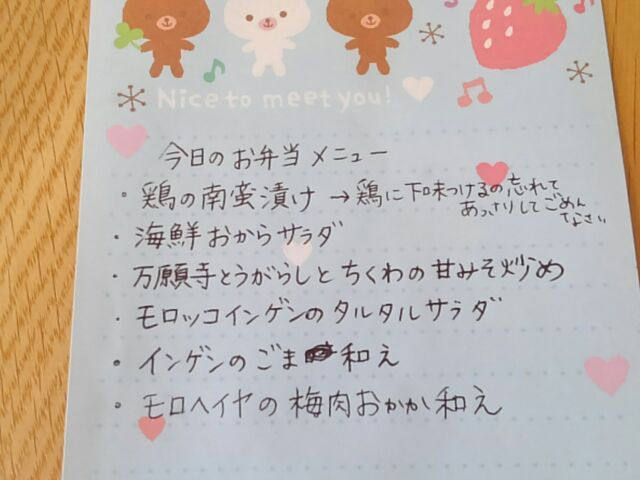 Nice to meet you!
今日のお弁当メニュー
・鶏の南蛮漬け → 鶏に下味つけるの忘れて
あっさりしてごめん
なさい
・海鮮おからサラダ
・万願寺とうがらしとちくわの甘みそ炒め
・モロッコインゲンのタルタルサラダ
・インゲンのごま和え
・モロヘイヤの梅肉おかか和え